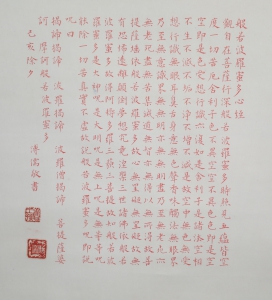 般若波羅蜜多心經
觀自在菩薩行深般若波羅蜜多時照見五蘊皆空
度一切苦厄舍利子色不異空空不異色色即是
空空即是色受想行識亦復如是舍利子是諸法空相
不生不滅不垢不淨不增不減是故空中無色無受
想行識無眼耳鼻舌身意無色聲香味觸法無眼界
乃至無意識界無無明亦無無明盡乃至無老死亦
無老死盡無苦集滅道無智亦無得以無所得故菩
提薩埵依般若波羅蜜多故心無罣礙無罣礙故無
有恐怖遠離顛倒夢想究竟涅槃三世諸佛依般若
波羅蜜多故得阿耨多羅三藐三菩提故知般若波
羅蜜多是大神呪是大明呪是無上呪是無等等呪
能除一切苦真實不虛故說般若波羅蜜多呪即說
呪曰
揭諦揭諦 波羅揭諦 波羅僧揭諦 菩提薩婆
訶 摩訶般若波羅蜜多
己亥除夕 溥儒敬書